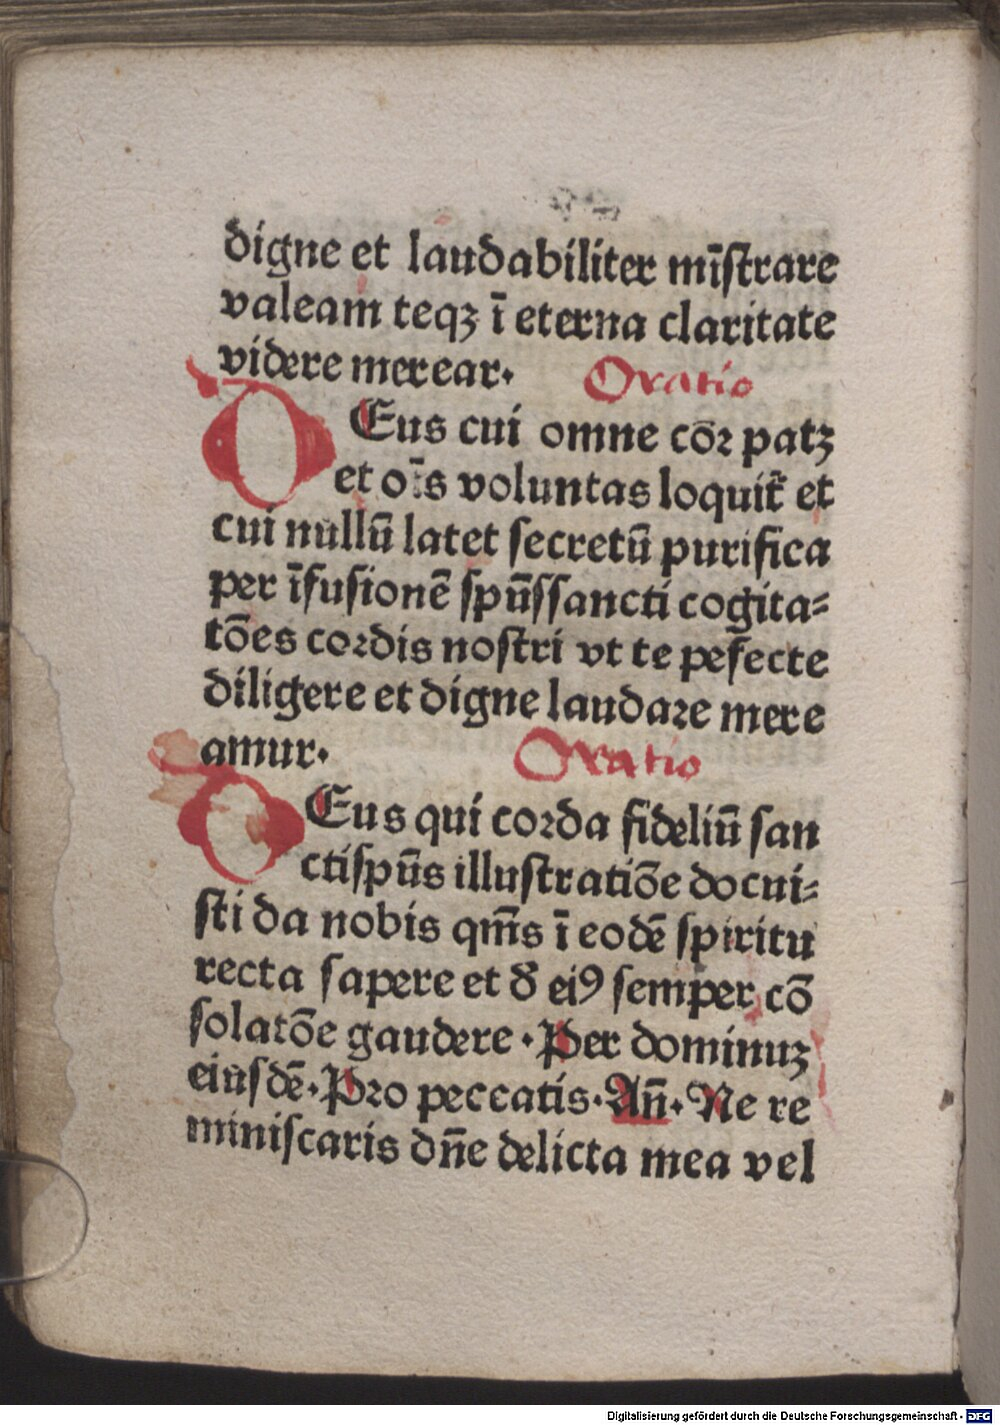 digne et laudabiliter mīſtrare
valeam teqꝫ ī eterna claritate
videre merear.
Oratio
DEus cui omne cōꝛ patꝫ
et oīs voluntas loquit᷑ et
cui nullū latet ſecretū purifica
per īfuſionē ſpūſſancti cogita⸗
tōes coꝛdis noſtri vt te pef̄ecte
diligere et digne laudaꝛe mere
amur.
Oratio
DEus qui coꝛda fideliū ſan
ctiſpūs illuſtratiōe docui⸗
ſti da nobis qm̄s ī eodē ſpiritu
recta ſapere et đ eiꝰ ſemper cō
ſolatōe gaudere. Per dominuꝫ
eiuſdē. Pꝛo peccatis. An̄. Ne re
miniſcaris dn̄e delicta mea vel
Digitalisierung gefördert durch die Deutsche Forschungsgemeinschaft - DFG